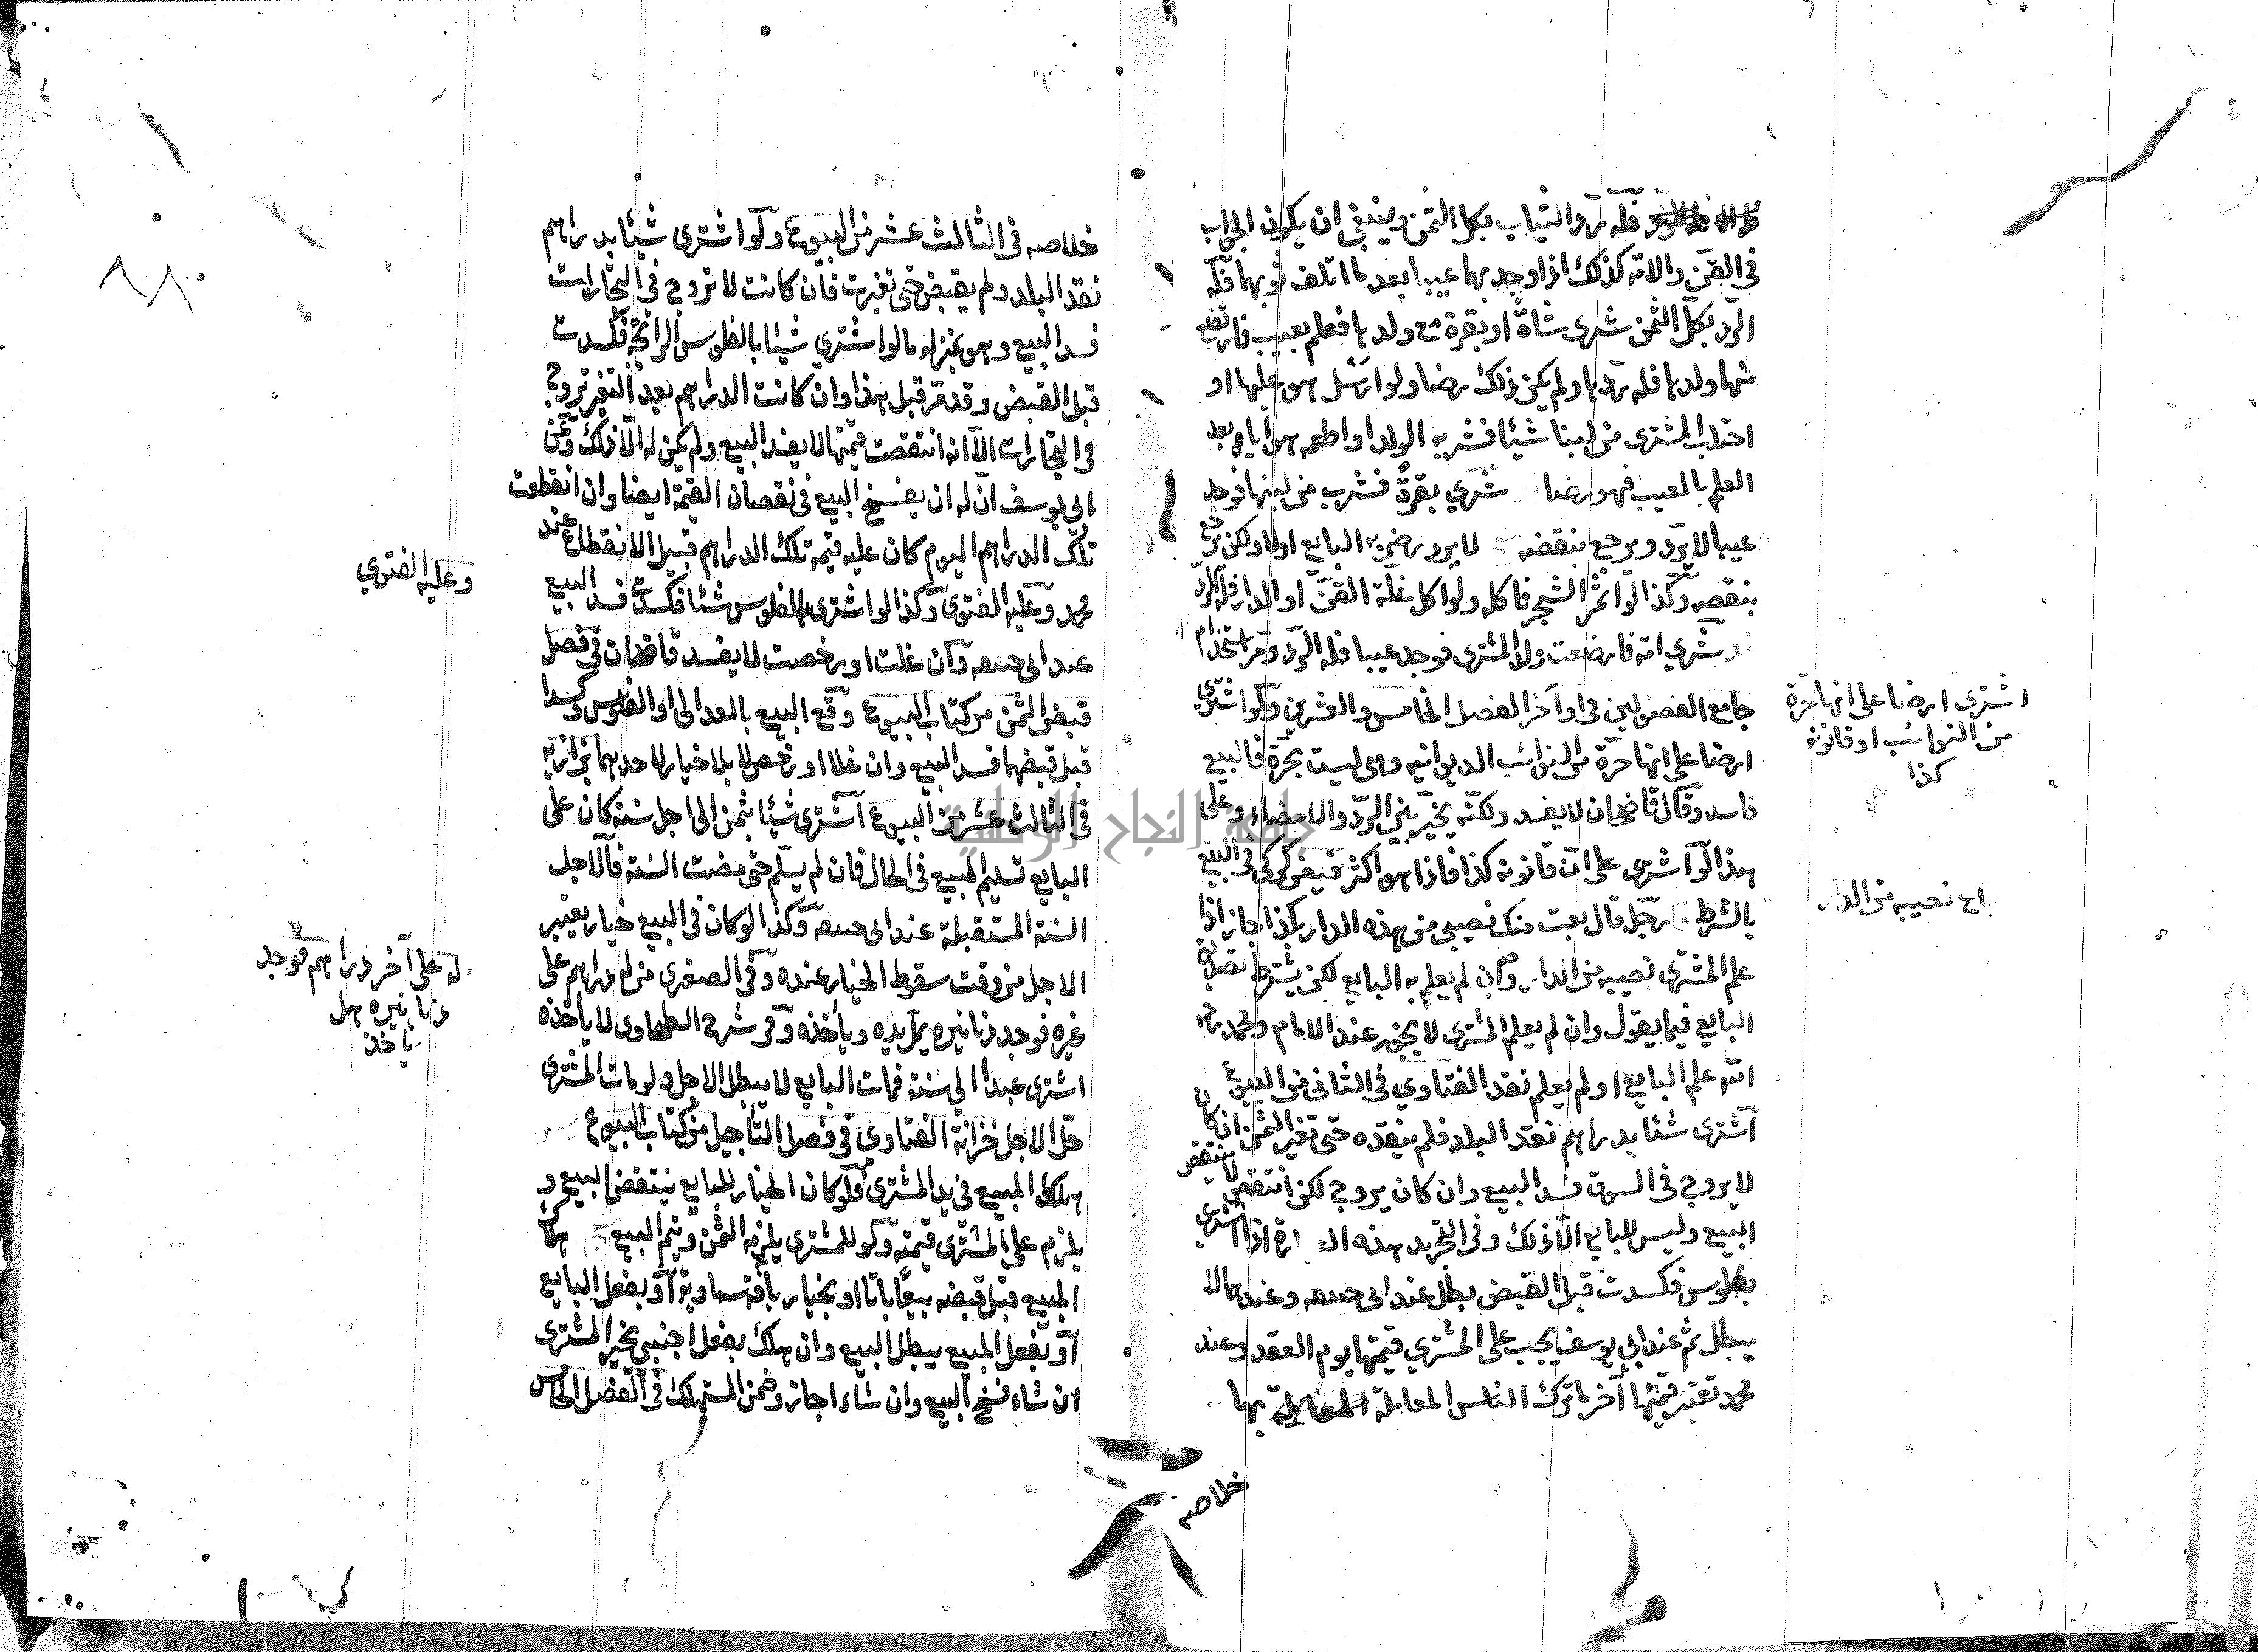 فله رد الثياب بكل الثمن وينبغي ان يكون الجواب
في القن والامة كذلك اذا وجد بها عيبا بعد ما اتلف ثوبها فله
الرد بكل الثمن شرى شاة او بقرة مع ولدها فعلم بعيب فارتضع
منها ولدها فله ردها ولم يكن ذلك رضا ولو ارسل هو عليها او
احتلب المشترى من لبنا شيئا فشربه الولد او اطعمه هو اياه بعد
العلم بالعيب فهو رضا شري بقرة فشرب من لبنها فوجد
عيبا لا يرد ويرجع بنقصه لا يرد رضي به البايع اولا ولكن يرجع
بنقصه وكذا لو اثمر الشجر فاكله ولو اكل غلة القن او الدار فله الرد
شري امة فارضعت ولد المشترى فوجد عيبا فله الرد ومر استخدام
جامع الفصولين في اواخر الفصل الخامس والعشرين ولو اشترى
ارضا على انها حرة من النوائب الديوانية وهي ليست بحرة فالبيع
فاسد وقال قاضيخان لا يفسد ولكنه يخير بين الرد والامضاء وعلى
هذا لو اشترى على ان قانونه كذا فاذا هو اكثر فيض كركي في البيع
بالشرط رجل قال بعت منك نصيبي من هذه الدار بكذا جاز اذا
علم المشترى نصيبه من الدار وان لم يعلم به البايع لكن يشترط تصديق
البايع فيما يقول وان لم يعلم المشترى لا يجوز عند الامام ومحمد رحمه
الله علم البايع او لم يعلم نقد الفتاوي في الثاني من البيوع
اشترى شئا بدراهم نقد البلد فلم ينقده حتى تغير الثمن ان كان
لا يروج في السوق فسد البيع وان كان يروج لكن انتقص لا ينتقض
البيع وليس للبايع الا ذلك وفي التجريد هذه اذا اشترى
بفلوس فكسدت قبل القبض بطل عند ابي حنيفه وعندهما لا
يبطل ثم عند ابي يوسف يجب على المشتري قيمتها يوم العقد وعند
محمد تعتبر قيمتها آخر ما ترك الناس المعاملة بها
خلاصه
اشترى ارضا على انها حرة
من النوائب او قانونه
كذا
باع نصيبه من الدار
خلاصه في الثالث عشر من البيوع ولو اشترى شيئا بدراهم
نقد البلد ولم يقبض حتى تغيرت فان كانت لا تروج في التجارات
فسد البيع وهو بمنزلة ما لو اشتري شيئا بالفلوس الرائجة فكسدت
قبل القبض وقد مر قبل هذا وان كانت الدراهم بعد التغير تروج
في التجارات الا انه انتقصت قيمتها لا يفسد البيع ولم يكن له الا ذلك وعن
ابي يوسف ان له ان يفسخ البيع في نقصان القيمة ايضا وان انقطعت
تلك الدراهم اليوم كان عليه قيمة تلك الدراهم قبيل الانقطاع عند
محمد وعليه الفتوى وكذا لو اشترى بالفلوس شئا فكسدت فسد البيع
عند ابي حنيفه وان غلت او رخصت لا يفسد قاضيخان في فصل
قبض الثمن من كتاب البيوع وقع البيع بالعدالى او الفلوس وكسدا
قبل قبضهما فسد البيع وان غلا او رخص لا بلا خيار لاحدهما بزازيه
في الثالث عشر من البيوع اشترى شيئا بثمن الى اجل سنة كان على
البايع تسليم المبيع في الحال فان لم يسلم حتى مضت السنة فالاجل
السنة المستقبلة عند ابي حنيفه وكذا لو كان في البيع خيار يعتبر
الاجل من وقت سقوط الخيار عنده وفي الصغرى من له دراهم على
غيره فوجد دنانيره يمد يده ويأخذه وفي شرح الطحاوى لا يأخذه
اشترى عبدا الى سنة فمات البايع لا يبطل الاجل ولو مات المشترى
حل الاجل خزانة الفتاوى في فصل التأجيل من كتاب البيوع
هلك المبيع في يد المشترى فلو كان الخيار للبايع ينتقض البيع و
يلزم على المشترى قيمته ولو للمشترى يلزمه الثمن ويتم البيع هلاك
المبيع قبل قبضه بيعا باتا او بخيار بآفة سماوية او بفعل البايع
او بفعل المبيع يبطل البيع وان هلك بفعل اجنبي يخير المشترى
ان شاء فسخ البيع وان شاء اجاز وضمن المستهلك في الفصل الخامس
وعليه الفتوي
له على آخر دراهم فوجد
دنانيره هل
يأخذ
٨٨
جامعة النجاح الوطنية